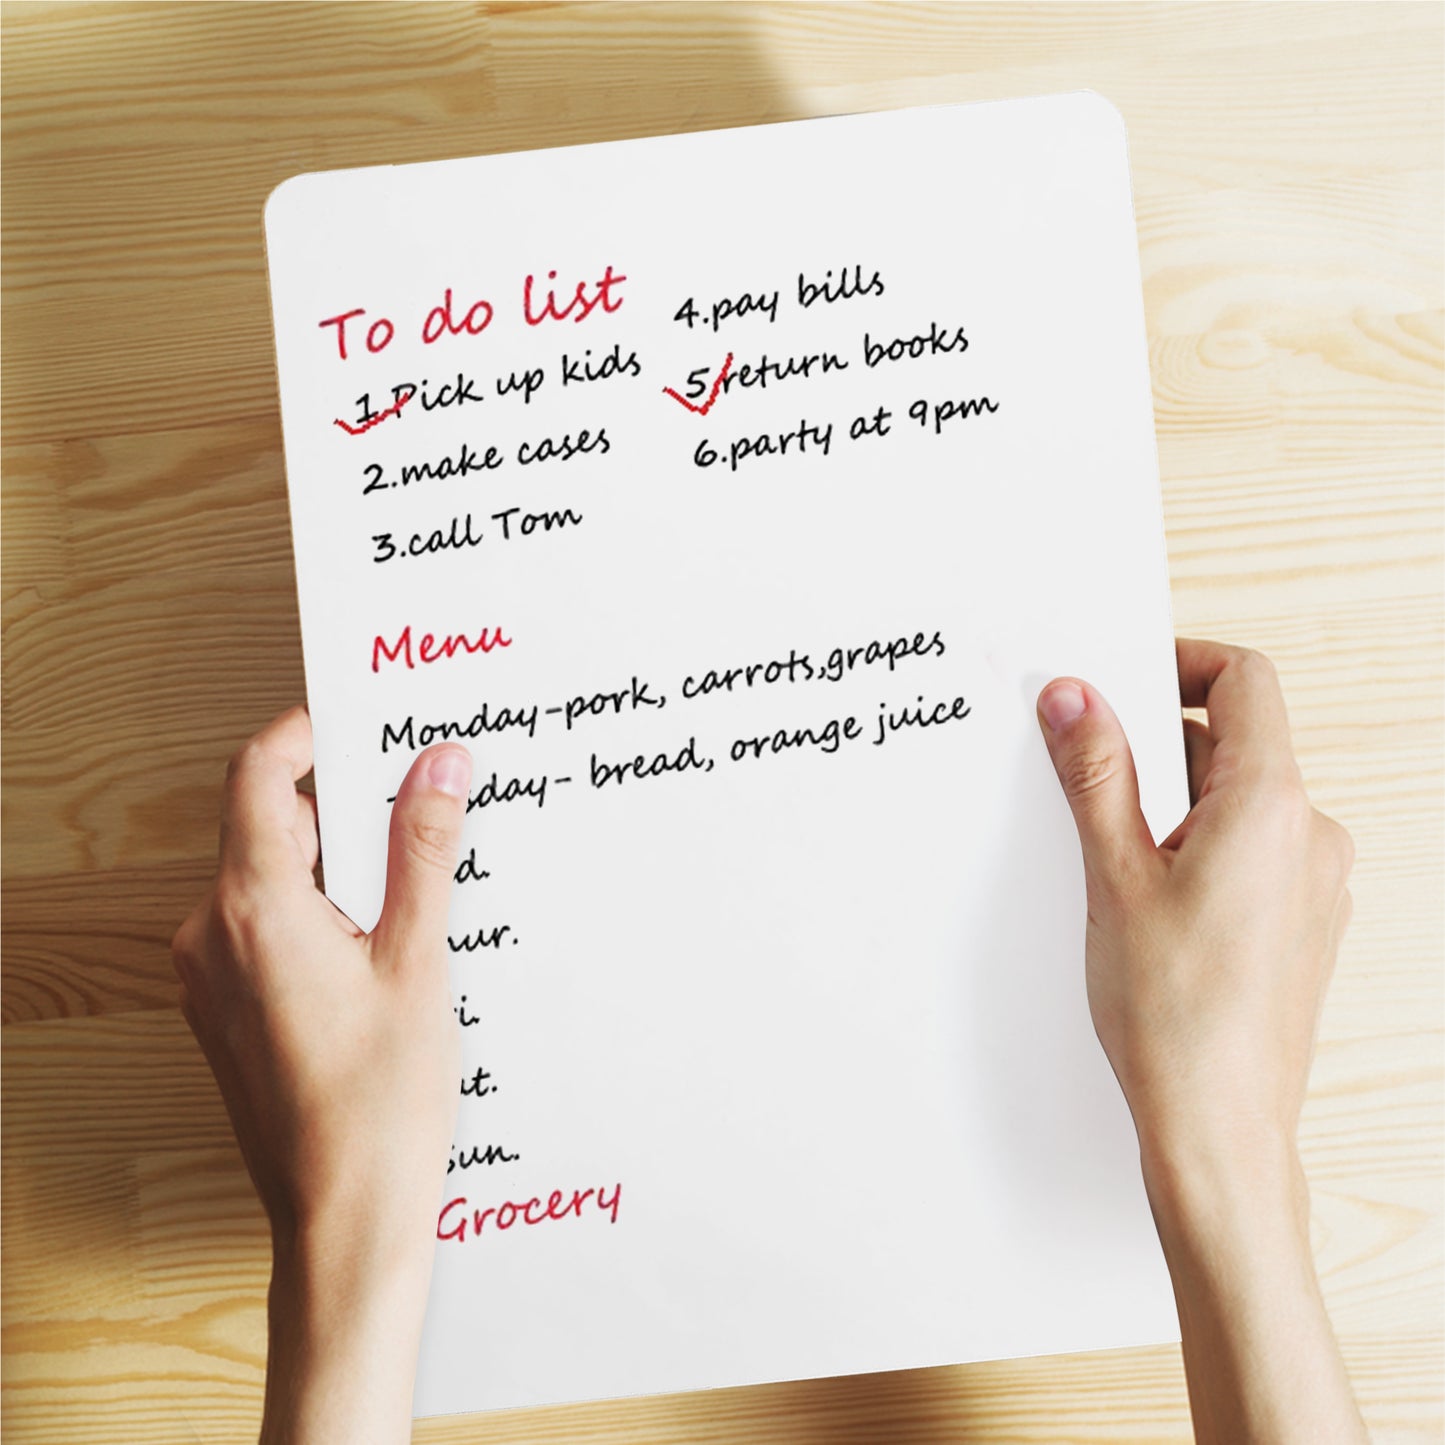 To do list
1.Pick up kids
2.make cases
3.call Tom
4.pay bills
5.return books
6.party at 9pm
Menu
Monday-pork, carrots,grapes
- bread, orange juice
Sun.
Grocery